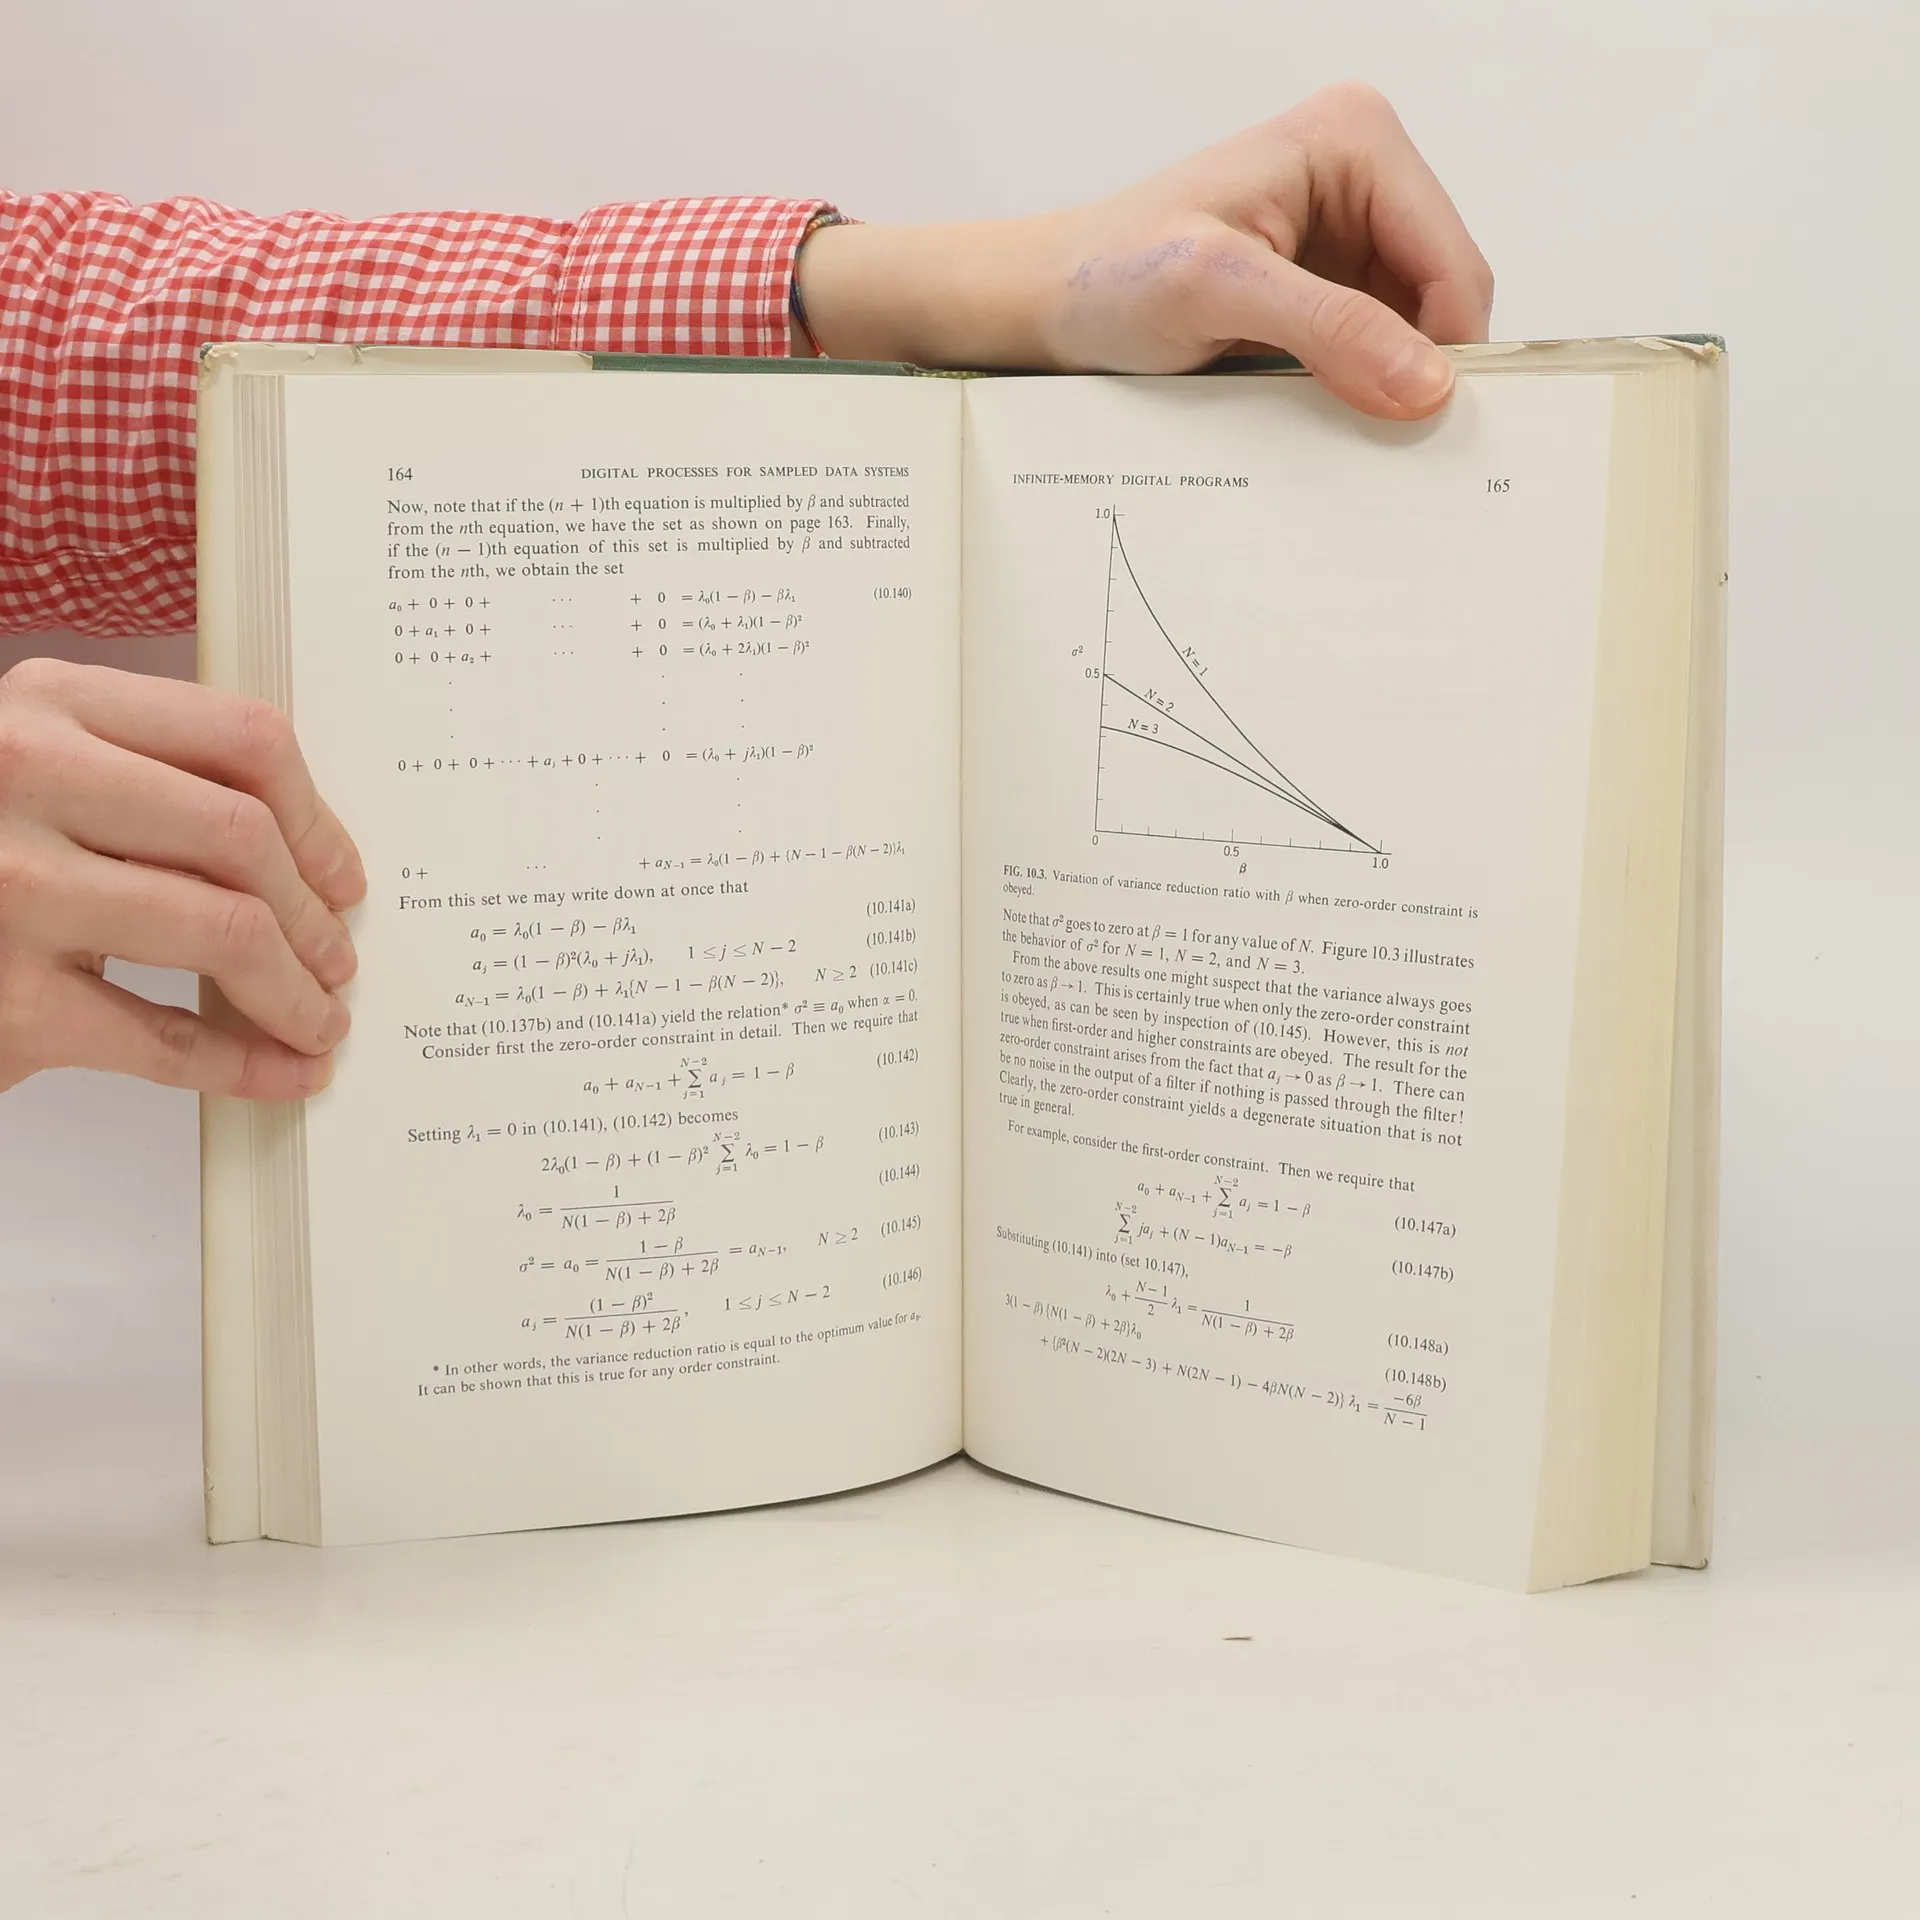 164 DIGITAL PROCESSES FOR SAMPLED DATA SYSTEMS
Now, note that if the (n + 1)th equation is multiplied by β and subtracted
from the nth equation, we have the set as shown on page 163. Finally,
if the (n − 1)th equation of this set is multiplied by β and subtracted
from the nth, we obtain the set
a₀ + 0 + 0 + ··· + 0 = λ₀(1 − β) − βλ₁ (10.140)
0 + a₁ + 0 + ··· + 0 = (λ₀ + λ₁)(1 − β)²
0 + 0 + a₂ + ··· + 0 = (λ₀ + 2λ₁)(1 − β)²
0 + 0 + 0 + ··· + aⱼ + 0 + ··· + 0 = (λ₀ + jλ₁)(1 − β)²
0 + ··· + a_{N−1} = λ₀(1 − β) + {N − 1 − β(N − 2)}λ₁
From this set we may write down at once that
a₀ = λ₀(1 − β) − βλ₁ (10.141a)
aⱼ = (1 − β)²(λ₀ + jλ₁), 1 ≤ j ≤ N − 2 (10.141b)
a_{N−1} = λ₀(1 − β) + λ₁{N − 1 − β(N − 2)}, N ≥ 2 (10.141c)
Note that (10.137b) and (10.141a) yield the relation* σ² ≡ a₀ when α = 0.
Consider first the zero-order constraint in detail. Then we require that
a₀ + a_{N−1} + ∑_{j=1}^{N−2} aⱼ = 1 − β (10.142)
Setting λ₁ = 0 in (10.141), (10.142) becomes
2λ₀(1 − β) + (1 − β)² ∑_{j=1}^{N−2} λ₀ = 1 − β (10.143)
λ₀ = 1 / (N(1 − β) + 2β) (10.144)
σ² = a₀ = (1 − β) / (N(1 − β) + 2β) = a_{N−1}, N ≥ 2 (10.145)
aⱼ = (1 − β)² / (N(1 − β) + 2β), 1 ≤ j ≤ N − 2 (10.146)
* In other words, the variance reduction ratio is equal to the optimum value for a₀.
It can be shown that this is true for any order constraint.
INFINITE-MEMORY DIGITAL PROGRAMS 165
1.0
N = 1
σ²
0.5
N = 2
N = 3
0 0.5 1.0
β
FIG. 10.3. Variation of variance reduction ratio with β when zero-order constraint is
obeyed.
Note that σ² goes to zero at β = 1 for any value of N. Figure 10.3 illustrates
the behavior of σ² for N = 1, N = 2, and N = 3.
From the above results one might suspect that the variance always goes
to zero as β → 1. This is certainly true when only the zero-order constraint
is obeyed, as can be seen by inspection of (10.145). However, this is not
true when first-order and higher constraints are obeyed. The result for the
zero-order constraint arises from the fact that aⱼ → 0 as β → 1. There can
be no noise in the output of a filter if nothing is passed through the filter!
Clearly, the zero-order constraint yields a degenerate situation that is not
true in general.
For example, consider the first-order constraint. Then we require that
a₀ + a_{N−1} + ∑_{j=1}^{N−2} aⱼ = 1 − β (10.147a)
∑_{j=1}^{N−2} jaⱼ + (N − 1)a_{N−1} = −β (10.147b)
Substituting (10.141) into (set 10.147),
λ₀ + (N − 1)/2 λ₁ = 1 / (N(1 − β) + 2β) (10.148a)
3(1 − β){N(1 − β) + 2β}λ₀ (10.148b)
+ {β²(N − 2)(2N − 3) + N(2N − 1) − 4βN(N − 2)} λ₁ = −6β / (N − 1)